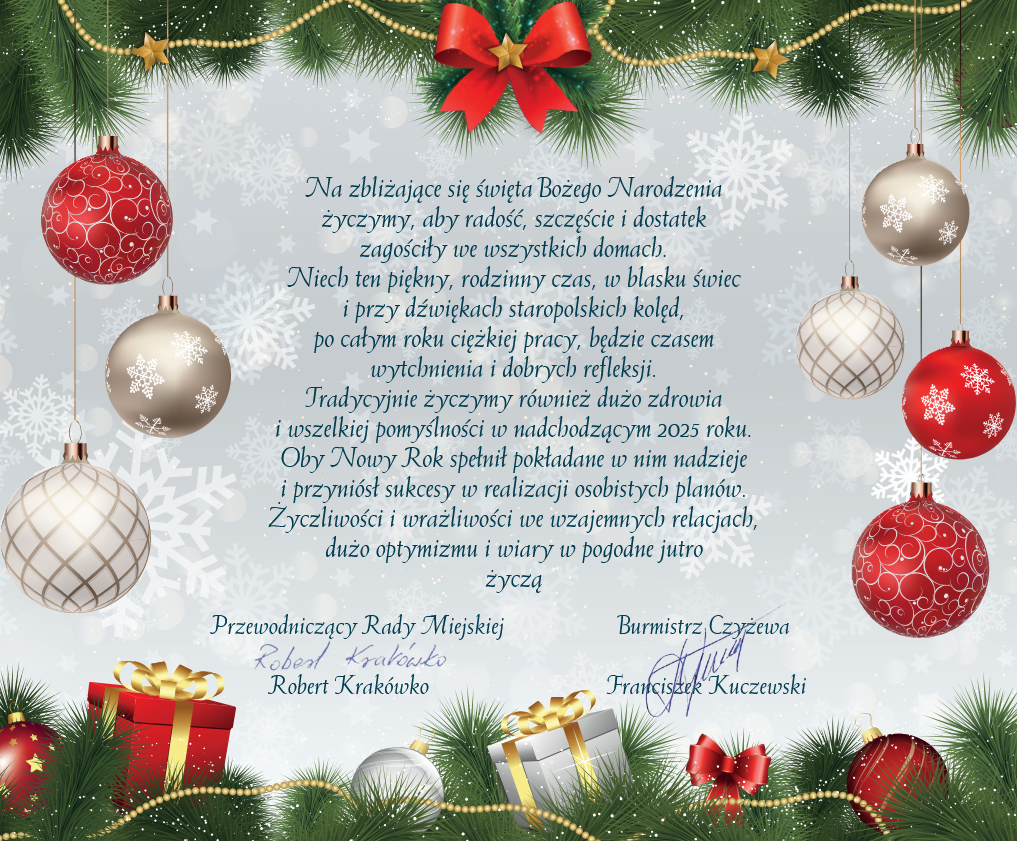 Na zbliżające się święta Bożego Narodzenia
życzymy, aby radość, szczęście i dostatek
zagościły we wszystkich domach.
Niech ten piękny, rodzinny czas, w blasku świec
i przy dźwiękach staropolskich kolęd,
po całym roku ciężkiej pracy, będzie czasem
wytchnienia i dobrych refleksji.
Tradycyjnie życzymy również dużo zdrowia
i wszelkiej pomyślności w nadchodzącym 2025 roku.
Oby Nowy Rok spełnił pokładane w nim nadzieje
i przyniósł sukcesy w realizacji osobistych planów.
Życzliwości i wrażliwości we wzajemnych relacjach,
dużo optymizmu i wiary w pogodne jutro
życzą
Przewodniczący Rady Miejskiej
Robert Krakówko
Robert Krakówko
Burmistrz Czyżewa
Franciszek Kuczewski